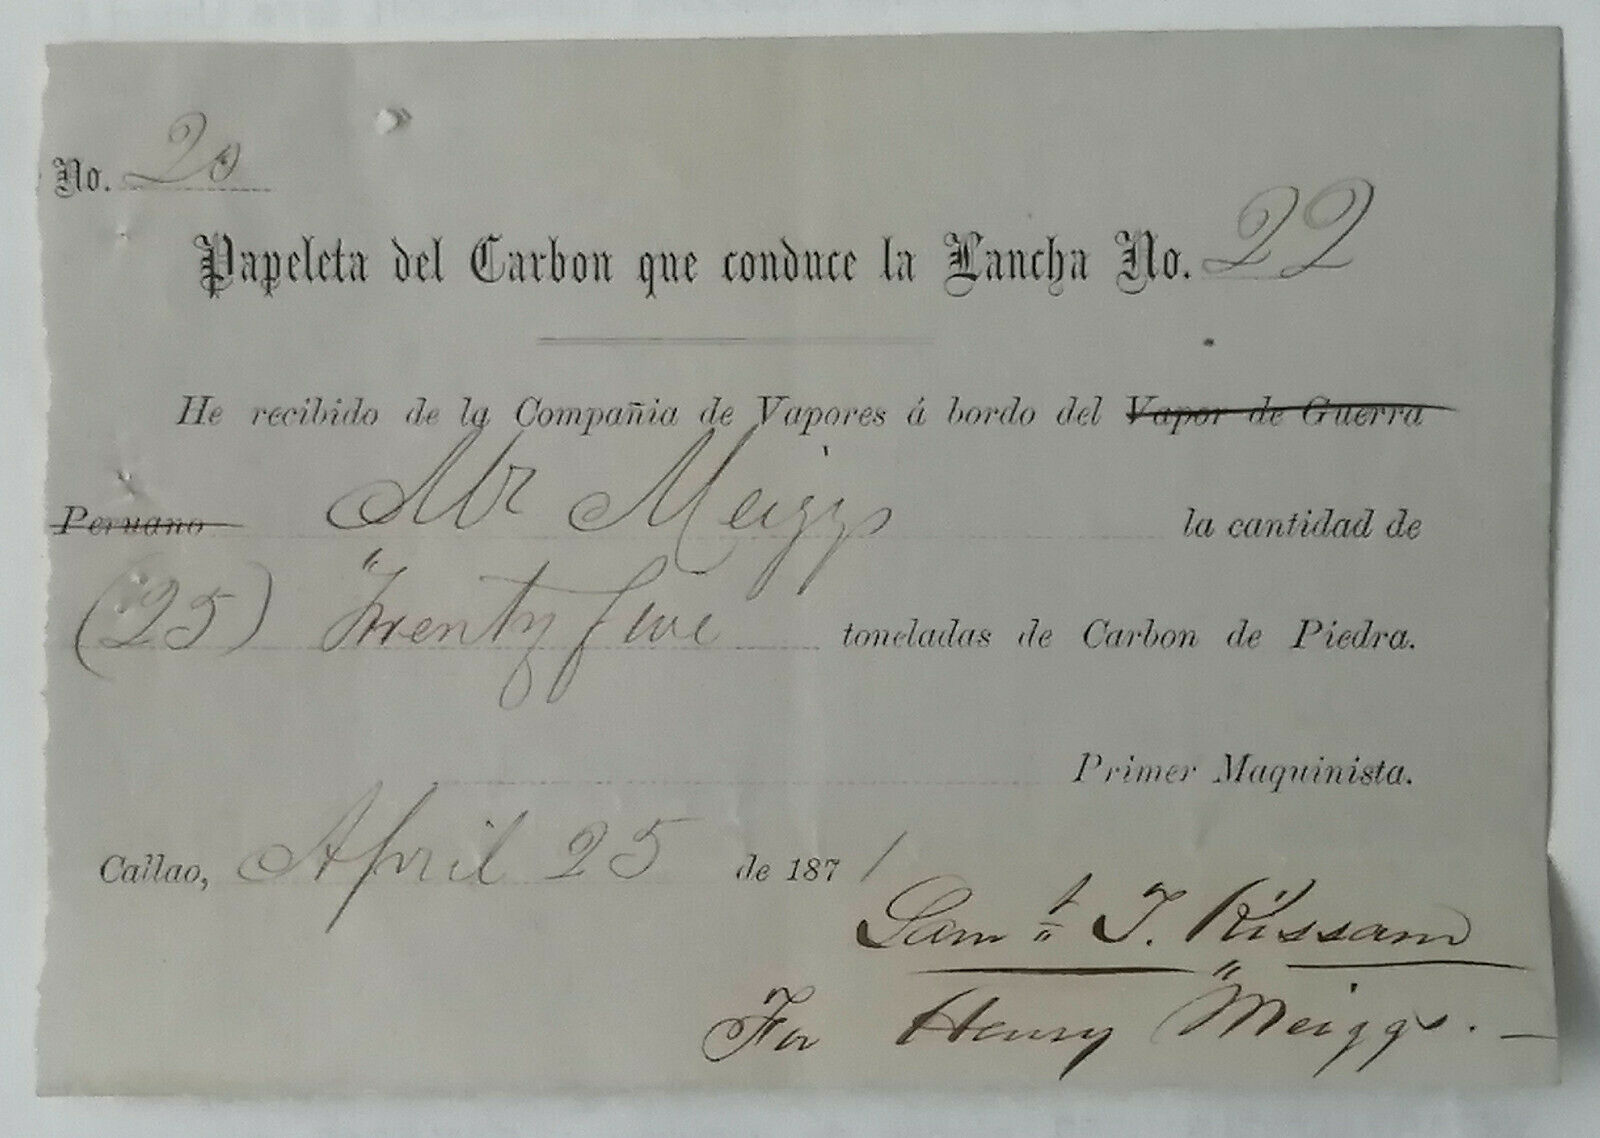 No. 20
Papeleta del Carbon que conduce la Lancha No. 22
He recibido de la Compañia de Vapores á bordo del Vapor de Guerra
Peruano Mr Meiggs la cantidad de
(25) Twenty five toneladas de Carbon de Piedra.
Primer Maquinista.
Callao, April 25 de 1871
Saml T. Kissam
For Henry Meiggs.